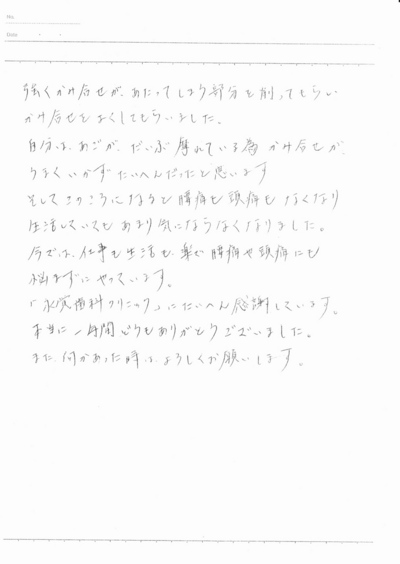 No.
Date
強くかみ合せが、あたってしまう部分を削ってもらい
かみ合せをよくしてもらいました。
自分は、あごが、だいぶ摩れている為 かみ合せが、
うまくいかず たいへんだったと思います
そしてこのころになると 腰痛も 頭痛も なくなり
生活していても あまり 気にならなくなりました。
今では、仕事も生活も 楽で 腰痛や頭痛にも
悩まずに やっています。
歯科クリニック」にたいへん 感謝しています。
本当に 一年間 どうもありがとうございました。
また 何かあった時は、よろしくお願いします。